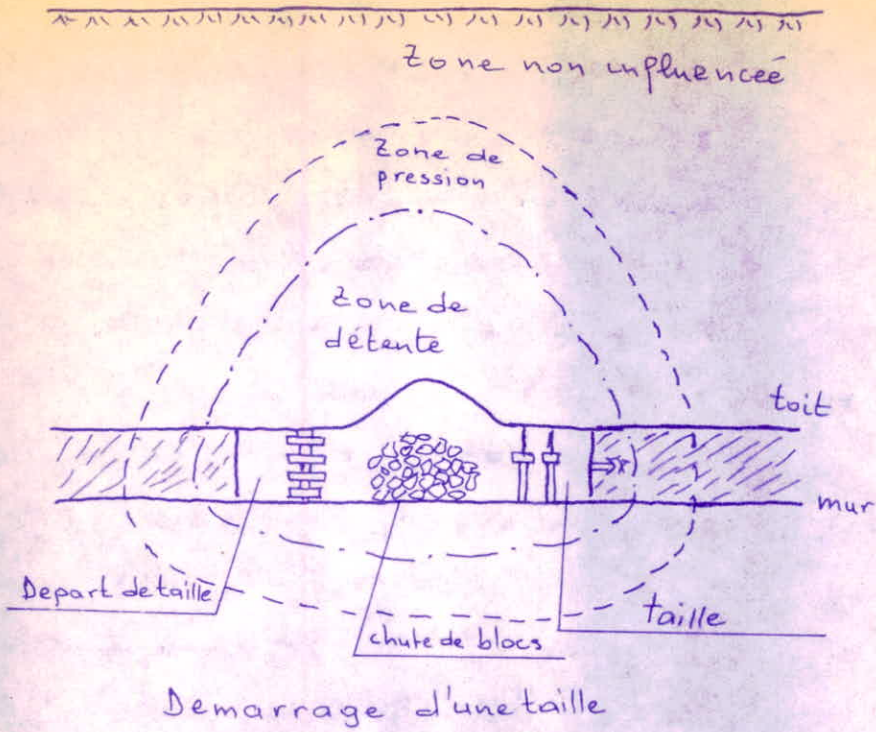 Zone non influenceé
Zone de
pression
Zone de
détente
toit
mur
Depart de taille
taille
chute de blocs
Demarrage d'une taille